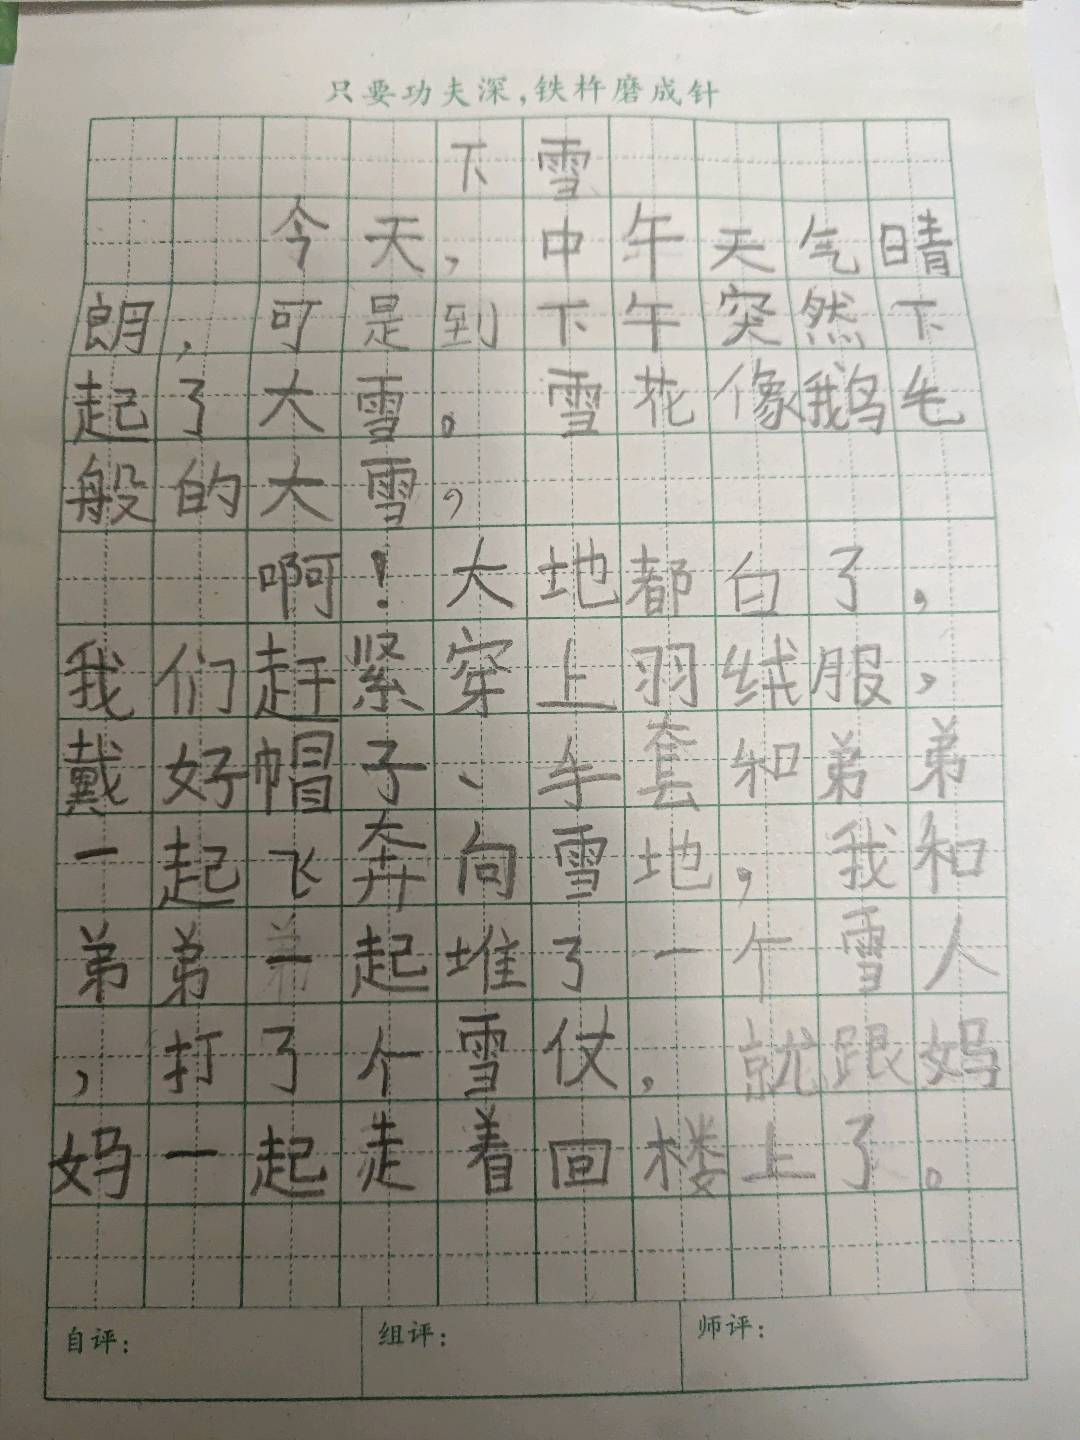 只要功夫深,铁杵磨成针
下雪
今天,中午天气晴
朗,可是到下午突然下
起了大雪。雪花像鹅毛
般的大雪,
啊!大地都白了,
我们赶紧穿上羽绒服,
戴好帽子、手套和弟弟
一起飞奔向雪地,我和
弟弟一起堆了一个雪人
,打了个雪仗,就跟妈
妈一起走着回楼上了。
自评: 组评: 师评: